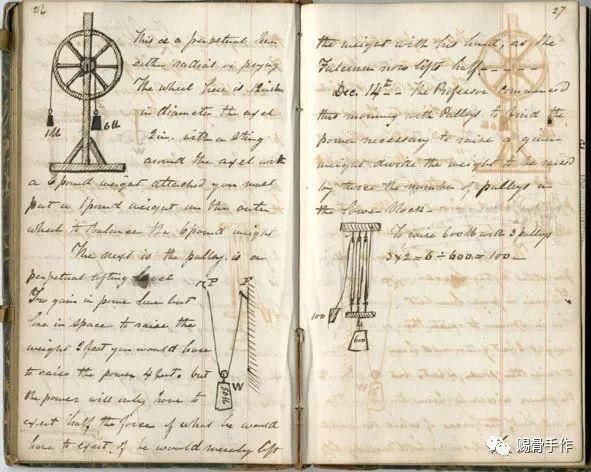 26
This is a perpetual line
either radial or
The wheel here is 12 inches
in diameter the axel
2 in. with a string
around the axel with
a 6 pound weight attached you must
put a 1 pound weight on the outer
wheel to balance the 6 pound weight
The next is the pulley is a
perpetual lifting level
You gain in power here but
lose in space to raise the
weight 2 feet you would have
to raise the power 4 feet. but
the power will only have to
exert half the force of what he would
have to exert if he would merely lift
1 lb
6 lb
P
F
W
50 lb
27
the weight with his hand, as the
Fulcrum now lifts half
Dec. 14th The Professor commenced
this morning with Pulleys to find the
power necessary to raise a given
weight divide the weight to be raised
by twice the number of pulleys in
the lower block
To raise 600 lb with 3 pulleys
3x2=6÷600=100
100
600
赐骨手作